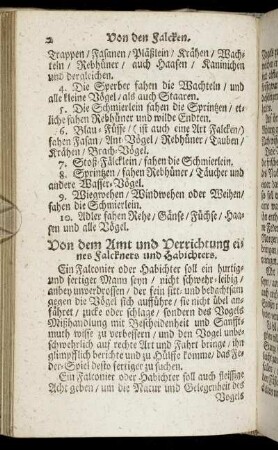 2 Von den Falcken.
Trappen / Fasanen / Pläßlein / Krähen / Wach-
teln / Rebhüner / auch Haasen / Kaninichen
und dergleichen.
4. Die Sperber fahen die Wachteln / und
alle kleine Vögel / als auch Staaren.
5. Die Schmierlein fahen die Sprintzen / et-
liche fahen Rebhüner und wilde Endten.
6. Blau-Füsse / (ist auch eine Art Falcken)
fahen Fasan / Ant-Vögel / Rebhüner / Tauben /
Krähen / Brach-Vögel.
7. Stoß-Fälcklein / fahen die Schmierlein.
8. Sprintzen / fahen Rebhüner / Täucher und
andere Wasser-Vögel.
9. Wiegwehen / Windwehen oder Weihen /
fahen die Schmierlein.
10. Adler fahen Rehe / Gänse / Füchse / Haa-
sen und alle Vögel.
Von dem Amt und Verrichtung ei-
nes Falckners und Habichters.
Ein Falconier oder Habichter soll ein hurtig-
und fertiger Mann seyn / nicht schweh-leibig /
unbeunwordrossen / der sein sitt- und bedachtsam
gegen die Vögel sich aufführe / sie nicht übel an-
fähret / zucke oder schlage / sondern des Vogels
Mißhandlung mit Bescheidenheit und Sanfft-
muth wisse zu verbessern / und den Vogel unbe-
schwehrlich auf rechte Art und Fahrt bringe / ihn
glimpfflich berichte und zu Hülffe komme / das Fe-
der-Spiel desto fertiger zu suchen.
Ein Falconier oder Habichter soll auch fleissige
Acht geben / um die Natur und Gelegenheit des
Vogels